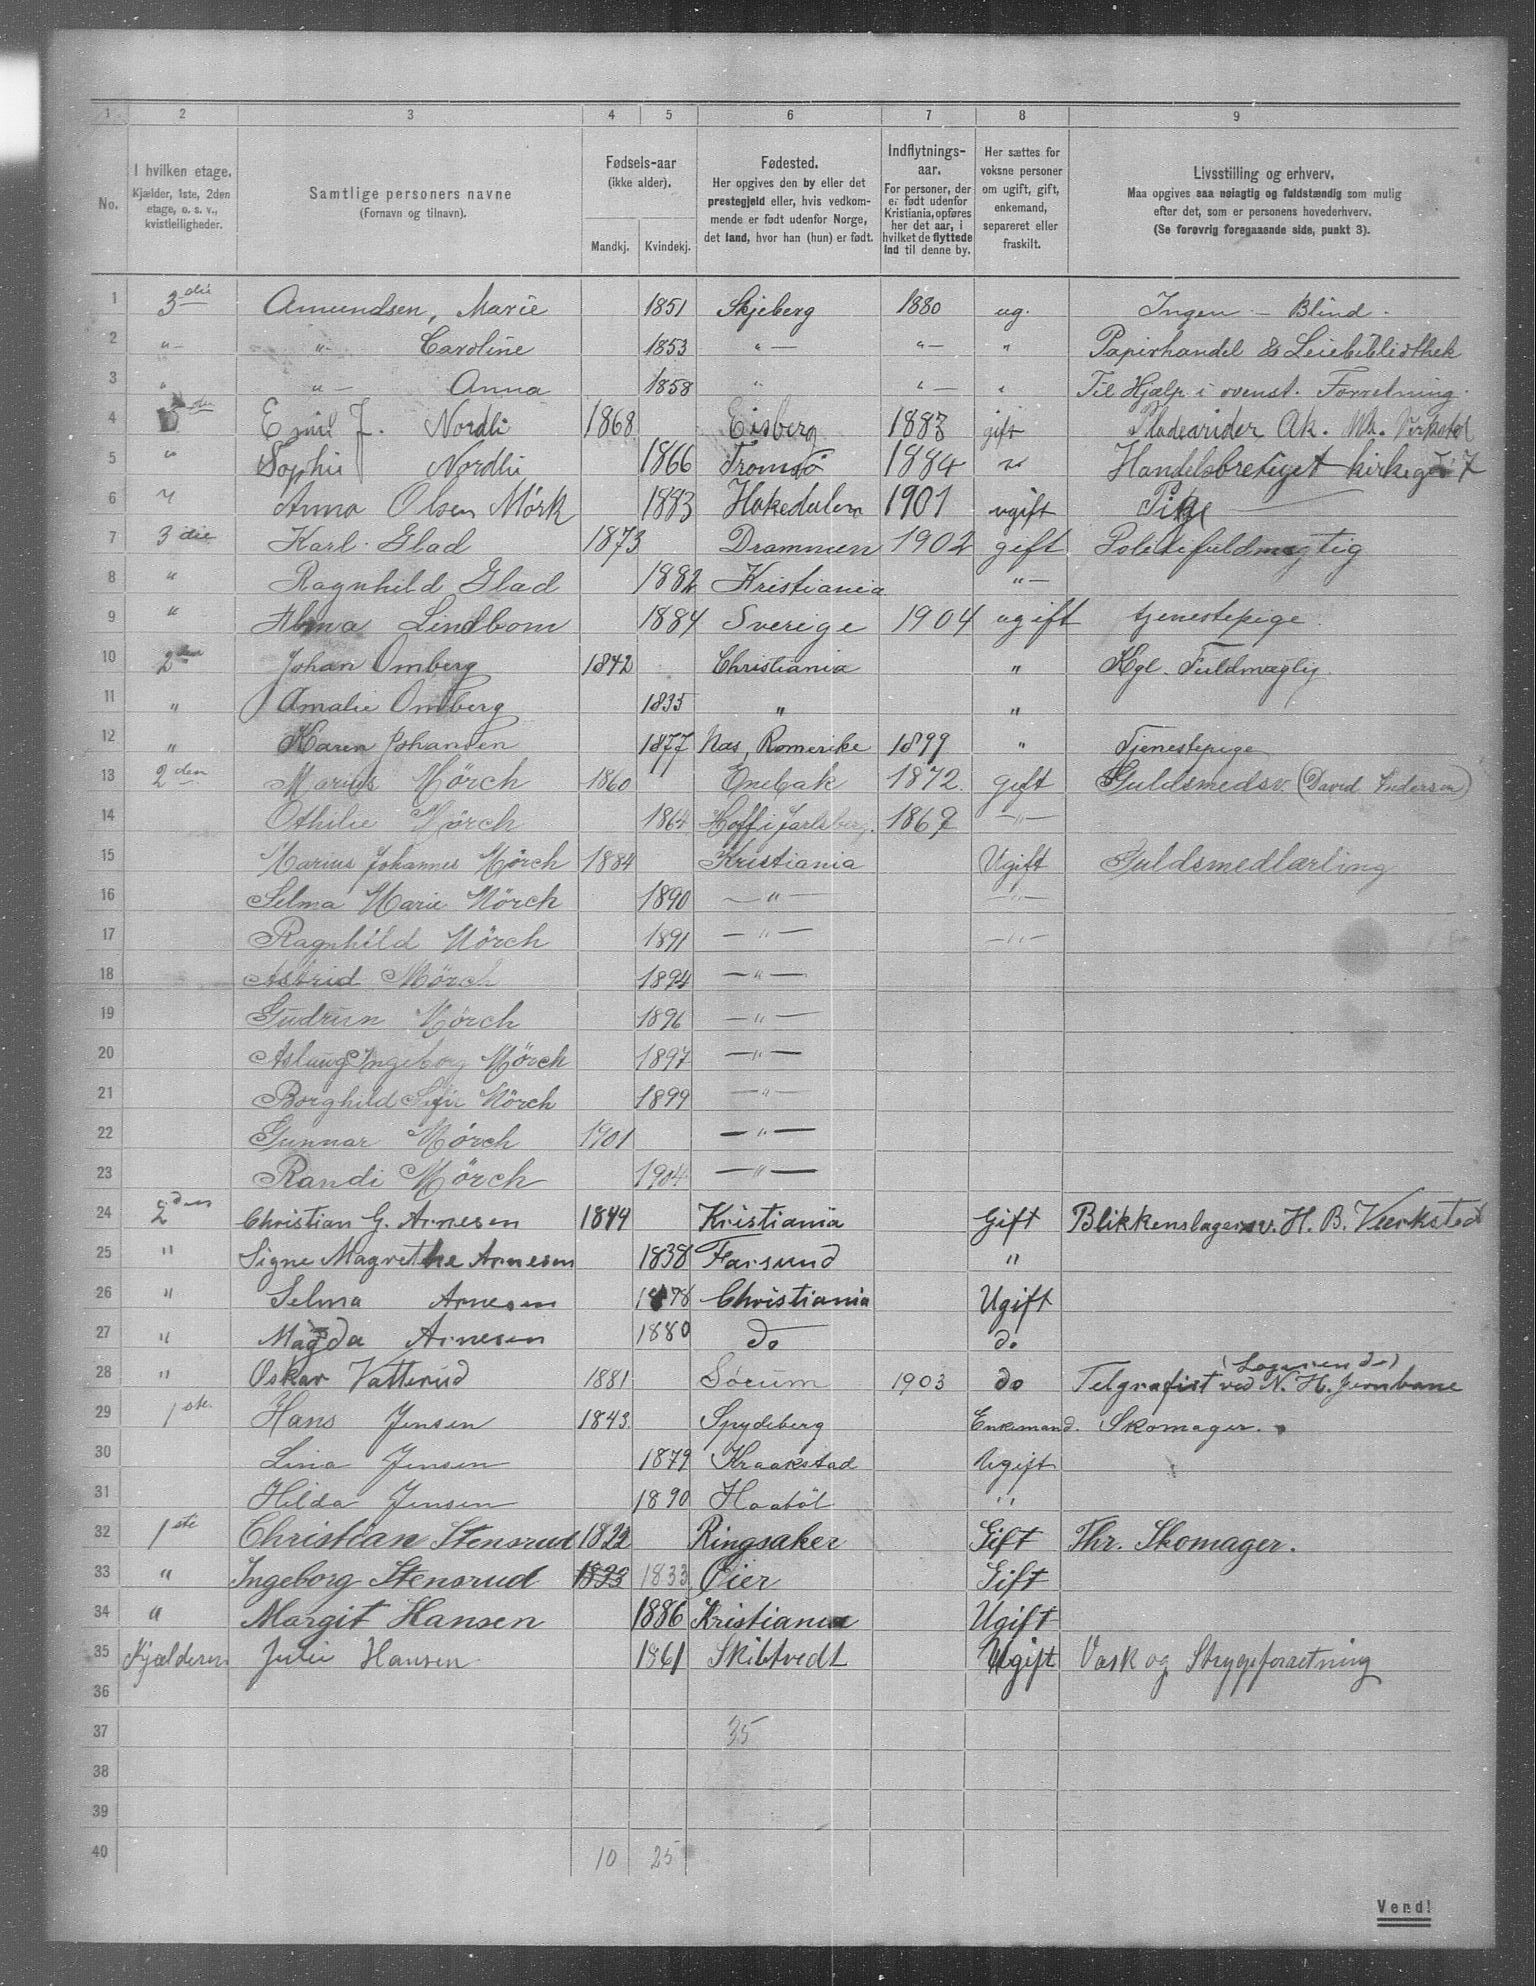 1 2 3 4 5 6 7 8 9
No. I hvilken etage. Kjælder, 1ste, 2den etage, o. s. v., kvistleiligheder. Samtlige personers navne (Fornavn og tilnavn). Fødsels-aar (ikke alder). Mandkj. Kvindekj. Fødested. Her opgives den by eller det prestegjeld eller, hvis vedkommende er født udenfor Norge, det land, hvor han (hun) er født. Indflytnings-aar. For personer, der er født udenfor Kristiania, opføres her det aar, i hvilket de flyttede ind til denne by. Her sættes for voksne personer om ugift, gift, enkemand, separeret eller fraskilt. Livsstilling og erhverv. Maa opgives saa nøiagtig og fuldstændig som mulig efter det, som er personens hovederhverv. (Se forøvrig foregaaende side, punkt 3).
1 3die Amundsen, Marie 1851 Skjeberg 1880 ug. Ingen - Blind.
2 " " Caroline 1853 " " " Papirhandel & Leiebibliothek
3 " " Anna 1858 " " " Til Hjælp i ovenst. Forretning.
4 Emil J. Nordli 1868 Eisberg 1883 gift Ak. Mk. Verksted
5 " Sophie Nordlie 1866 Tromsö 1884 " Handelsbretiget kirkeg
6 " Anna Olsen Mörk 1883 Hakedalen 1901 ugift Pige
7 3die Karl Glad 1873 Drammen 1902 gift Politifuldmægtig
8 " Ragnhild Glad 1882 Kristiania "
9 " Alma Lindbom 1884 Sverige 1904 ugift tjenestepige
10 2den Johan Omberg 1842 Christiania " Kgl. Fuldmægtig
11 " Amalie Omberg 1835 " "
12 " Karen Johansen 1877 Næs, Romerike 1899 " Tjenestepige
13 2den Marius Mörch 1860 Enebak 1872 gift Guldsmedsv. (David Andersen)
14 Othilie Mörch 1864 Hoff i Jarlsberg. 1867 "
15 Marius Johannes Mörch 1884 Kristiania Ugift Guldsmedlærling
16 Selma Marie Mörch 1890 " "
17 Ragnhild Mörch 1891 " "
18 Astrid Mörch 1894 "
19 Gudrun Mörch 1896 "
20 Aslaug Ingeborg Mörch 1897 "
21 Borghild Sofie Mörch 1899 "
22 Gunnar Mörch 1901 "
23 Randi Mörch 1904 "
24 2den Christian G. Arnesen 1844 Kristiania Gift Blikkenslagersv. H. B. Værksted
25 " Signe Magrethe Arnesen 1838 Farsund "
26 " Selma Arnesen 1878 Christiania Ugift
27 " Magda Arnesen 1880 do do
28 " Oskar Vatterud 1881 Sörum 1903 do Telgrafist ved N. H. Jernbane (Logerende)
29 1ste. Hans Jensen 1843 Spydeberg Enkemand. Skomager.
30 Lina Jensen 1879 Kraakstad Ugift
31 Hilda Jensen 1890 Haaböl "
32 1ste Christian Stensrud 1822 Ringsaker Gift Fhr. Skomager.
33 " Ingeborg Stensrud 1833 1833 Öier Gift
34 " Margit Hansen 1886 Kristiania Ugift
35 Kjælderen Julie Hansen 1861 Skibtvedt Ugift Vask og Strygeforretning
36
37 35
38
39
40 10 25
Vend!